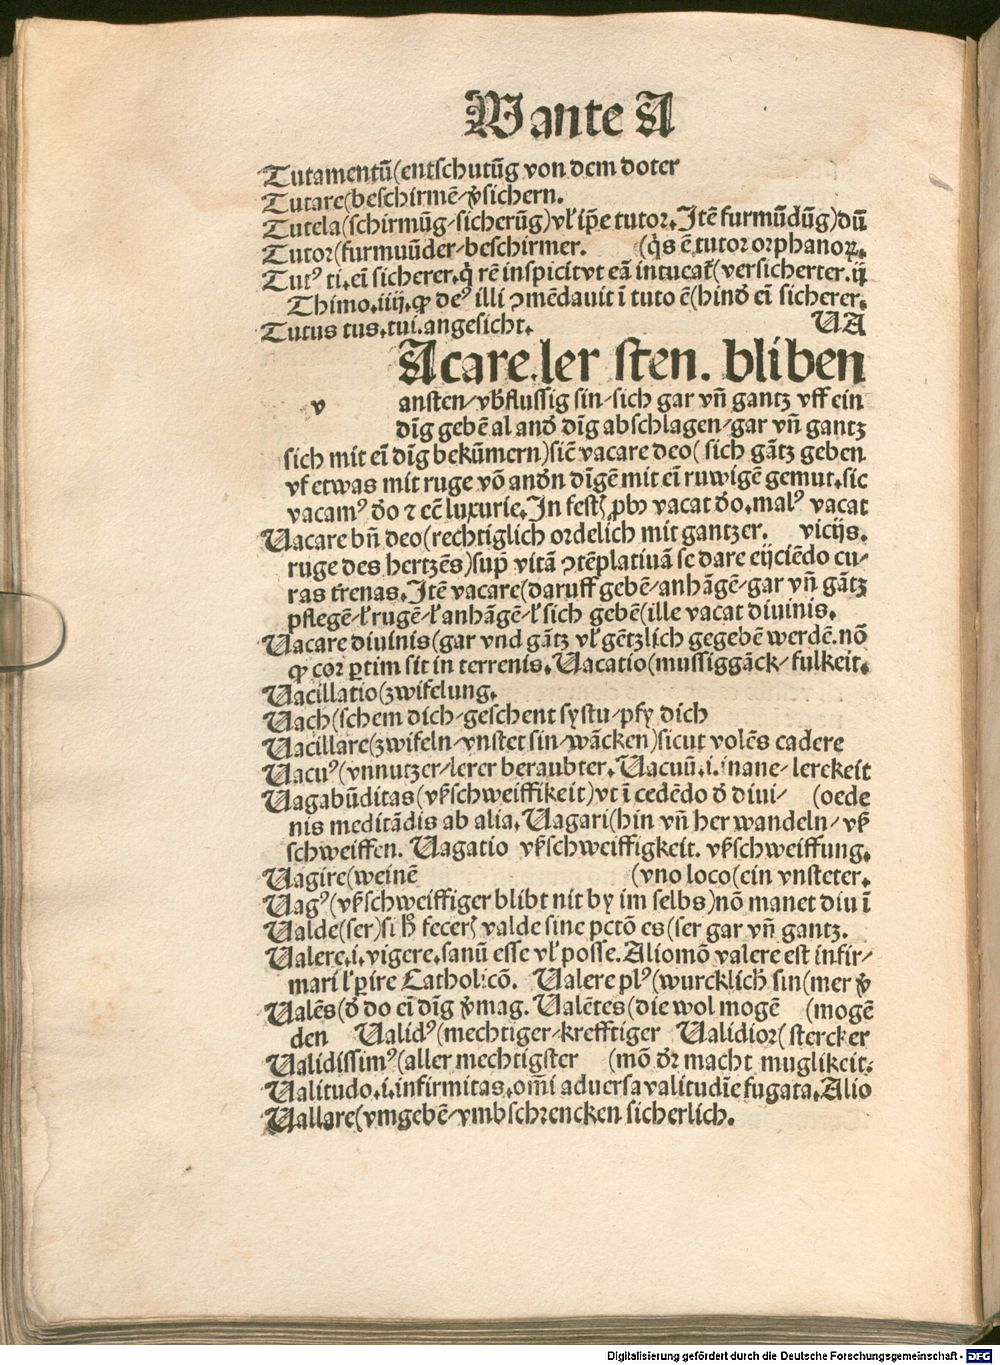 V ante A
Tutamentū(entschutūg von dem doter
Tutare(beschirmē/v̄sichern.
Tutela(schirmūg/sicherūg)vľ ip̄e tutor. Itē furmūdūg)dū
Tutor(furmuūder/beschirmer. (q̇s ē tutor orphanoꝝ.
Tutꝰ ti. eī sicherer. q̇ rē inspicit vt eā intucat̄(versicherter. ij
Thimo. iiij. ꝙ deꝰ illi ꝯmēdauit ī tuto ē(hind̓ eī sicherer.
Tutus tus. tui. angesicht. VA
Acare. ler sten. bliben
v ansten/vb̓flussig sin/sich gar vn̄ gantz vff ein
dīg gebē al and̓ dīg abschlagen/gar vn̄ gantz
sich mit eī dīg bekūmern)siē vacare deo( sich gātz geben
vf etwas mit ruge vō and̓n dīgē mit eī ruwigē gemut. sic
vacamꝰ d̓o ⁊ ecē luxurie. In fest᷎ ꝓbꝰ vacat d̓o. malꝰ vacat
Vacare bn̄ deo(rechtiglich ordelich mit gantzer. vicijs.
ruge des hertzēs)sup̄ vitā ꝯtēplatiuā se dare eijciēdo cu/
ras tr̄enas. Itē vacare(daruff gebē/anhāgē/gar vn̄ gātz
pflegē/ľ rugē/ľ anhāgē/ľ sich gebē(ille vacat diuinis.
Vacare diuinis(gar vnd gātz vľ gētzlich gegebē werdē. nō
ꝙ cor ꝑtim sit in terrenis. Vacatio(mussiggāck/ fulkeit.
Vacillatio(zwifelung.
Vach(schem dich/geschent systu/pfy dich
Vacillare(zwifeln/vnstet sin/wācken)sicut volēs cadere
Vacuꝰ(vnnutzer/lerer beraubter. Vacuū. i. inane/ lerckeit
Vagabūditas(vm̄schweiffikeit)vt ī cedēdo d̓ diui/ (oede
nis meditādis ab alia. Vagari(hin vn̄ her wandeln/ vm̄
schweiffen. Vagatio vm̄schweiffigkeit. vm̄schweiffung.
Vagire(weinē (vno loco(ein vnsteter.
Vagꝰ(vm̄schweiffiger blibt nit by im selbs)nō manet diu ī
Valde(ser)si h̓ fecer᷎ valde sine pctō es(ser gar vn̄ gantz.
Valere. i. vigere. sanū esse vľ posse. Aliomō valere est infir/
mari ľ ꝑire Catholicō. Valere plꝰ(wurcklich sin(mer v̄
Valēs(d̓ do eī dīg v̄mag. Valētes(die wol mogē (mogē
den Validꝰ(mechtiger/krefftiger Validior( stercker
Validissimꝰ(aller mechtigster (mō d̓r macht muglikeit.
Valitudo. i. infirmitas. om̄i aduersa valitudīe fugata. Alio
Vallare(vmgebē/vmbschrencken sicherlich.
Digitalisierung gefördert durch die Deutsche Forschungsgemeinschaft - DFG